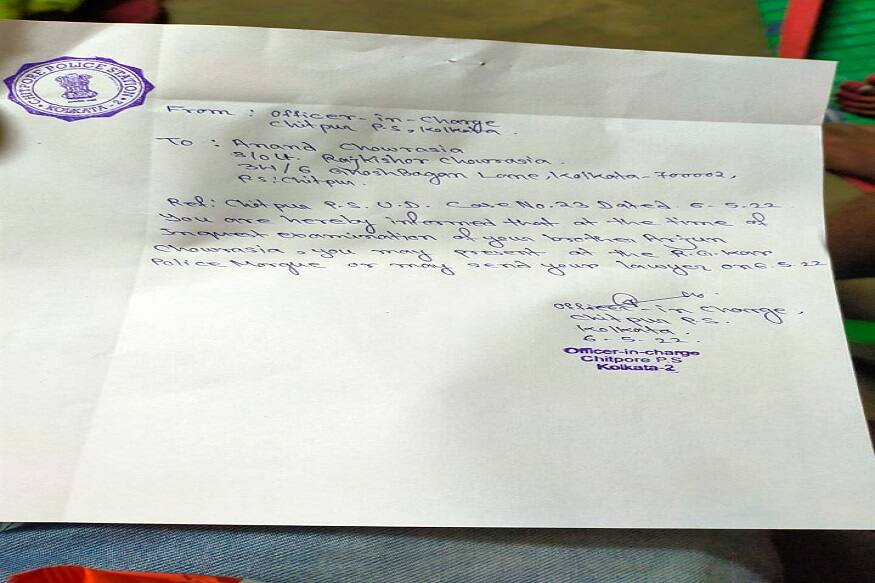 CHITPORE POLICE STATION
KOLKATA - 2
From : Officer-in-Charge
Chitpur P.S, Kolkata.
To : Anand Chowrasia
S/o Lt. Rajkishor Chowrasia.
3H/6 GhoshBagan Lane, Kolkata-700002,
P.S: Chitpur.
Ref: Chitpur P.S. U.D. Case No. 23 Dated 6.5.22
You are hereby informed that at the time of
Inquest examination of your brother Arjun
Chowrasia, you may present at the R.G. Kar
Police Morgue or may send your lawyer on 6.5.22
Officer-in charge,
Chitpur P.S.
Kolkata.
6-5-22.
Officer-in-charge
Chitpore P.S
Kolkata-2